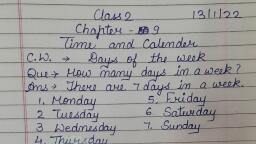 Class 2 13/1/22
Chapter - 9
Time and Calender
C.W. → Days of the week
Que → How many days in a week?
Ans → There are 7 days in a week.
1. Monday 5. Friday
2 Tuesday 6 Saturday
3 Wednesday 7. Sunday
4. Thursday